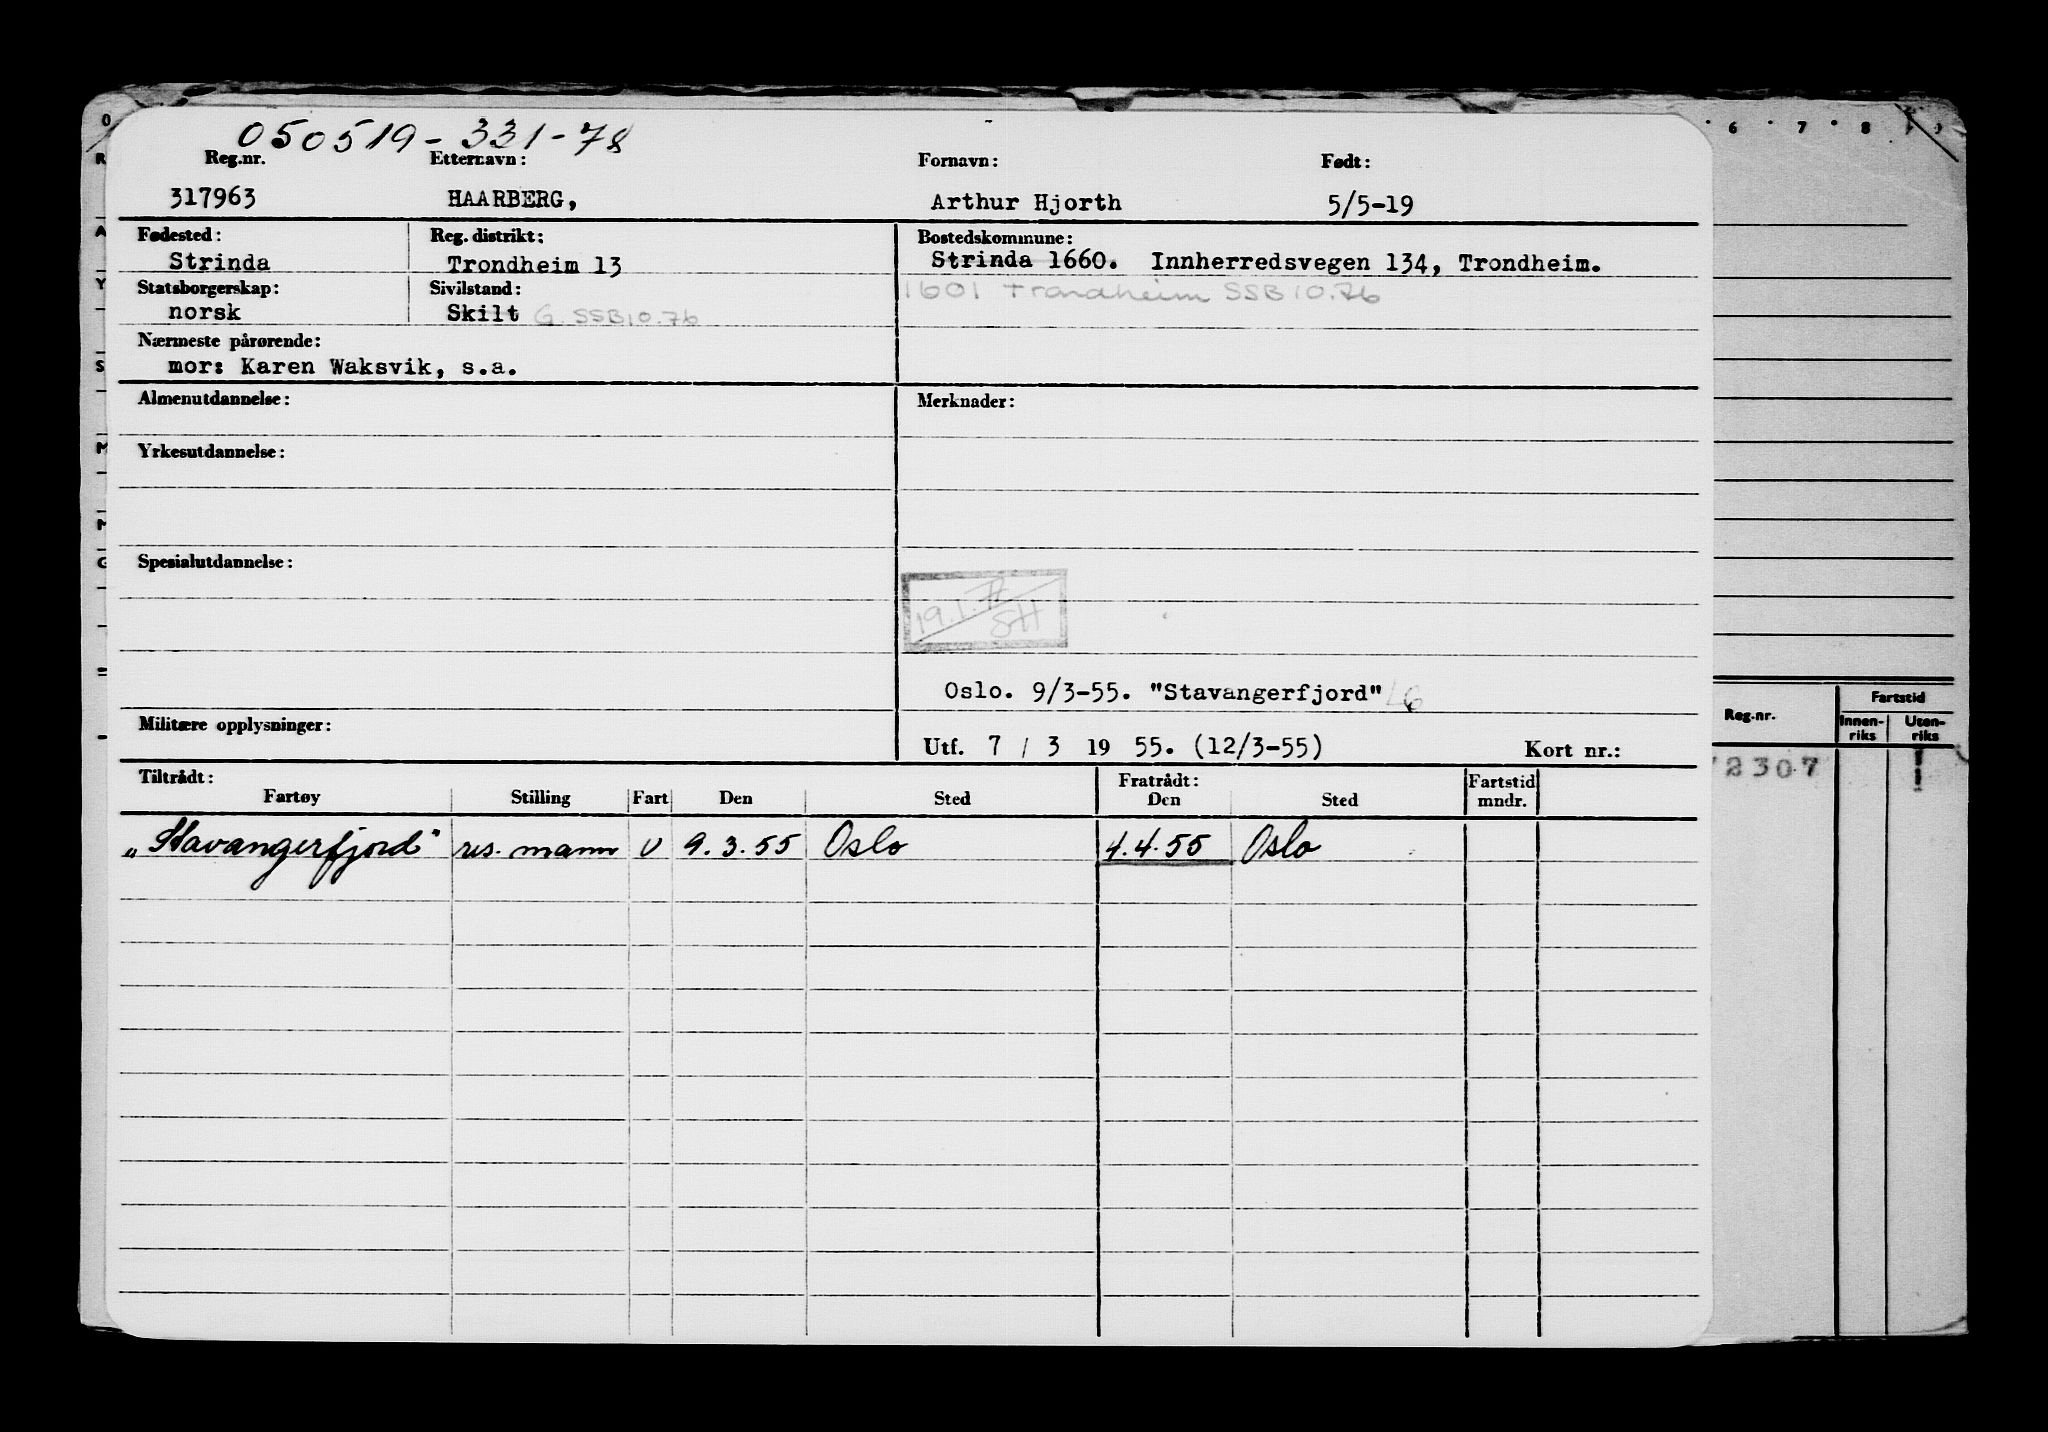 050519-331-78
Reg.nr. Etternavn: Fornavn: Født:
317963 HAARBERG, Arthur Hjorth 5/5-19
Fødested: Reg. distrikt: Bostedskommune:
Strinda Trondheim 13 Strinda 1660. Innherredsvegen 134, Trondheim.
Statsborgerskap: Sivilstand: 1601 Trondheim SSB 10.76
norsk Skilt G. SSB 10.76
Nærmeste pårørende:
mor: Karen Waksvik, s.a.
Almenutdannelse: Merknader:
Yrkesutdannelse:
Spesialutdannelse:
SH
Oslo. 9/3-55. "Stavangerfjord"
Militære opplysninger:
Utf. 7 / 3 19 55. (12/3-55) Kort nr.:
Tiltrådt: Fratrådt: Fartstid
Fartøy Stilling Fart Den Sted Den Sted mndr.
„Stavangerfjord" res. mann U 9.3.55 Oslo 4.4.55 Oslo
6 7 8
Fartstid
Reg.nr. Innen- Uten-
riks riks
2307